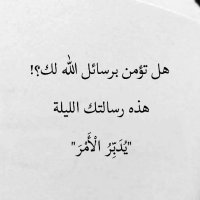 هل تؤمن برسائل الله لك؟!
هذه رسالتك الليلة
"يُدَبِّرُ الْأَمْرَ"